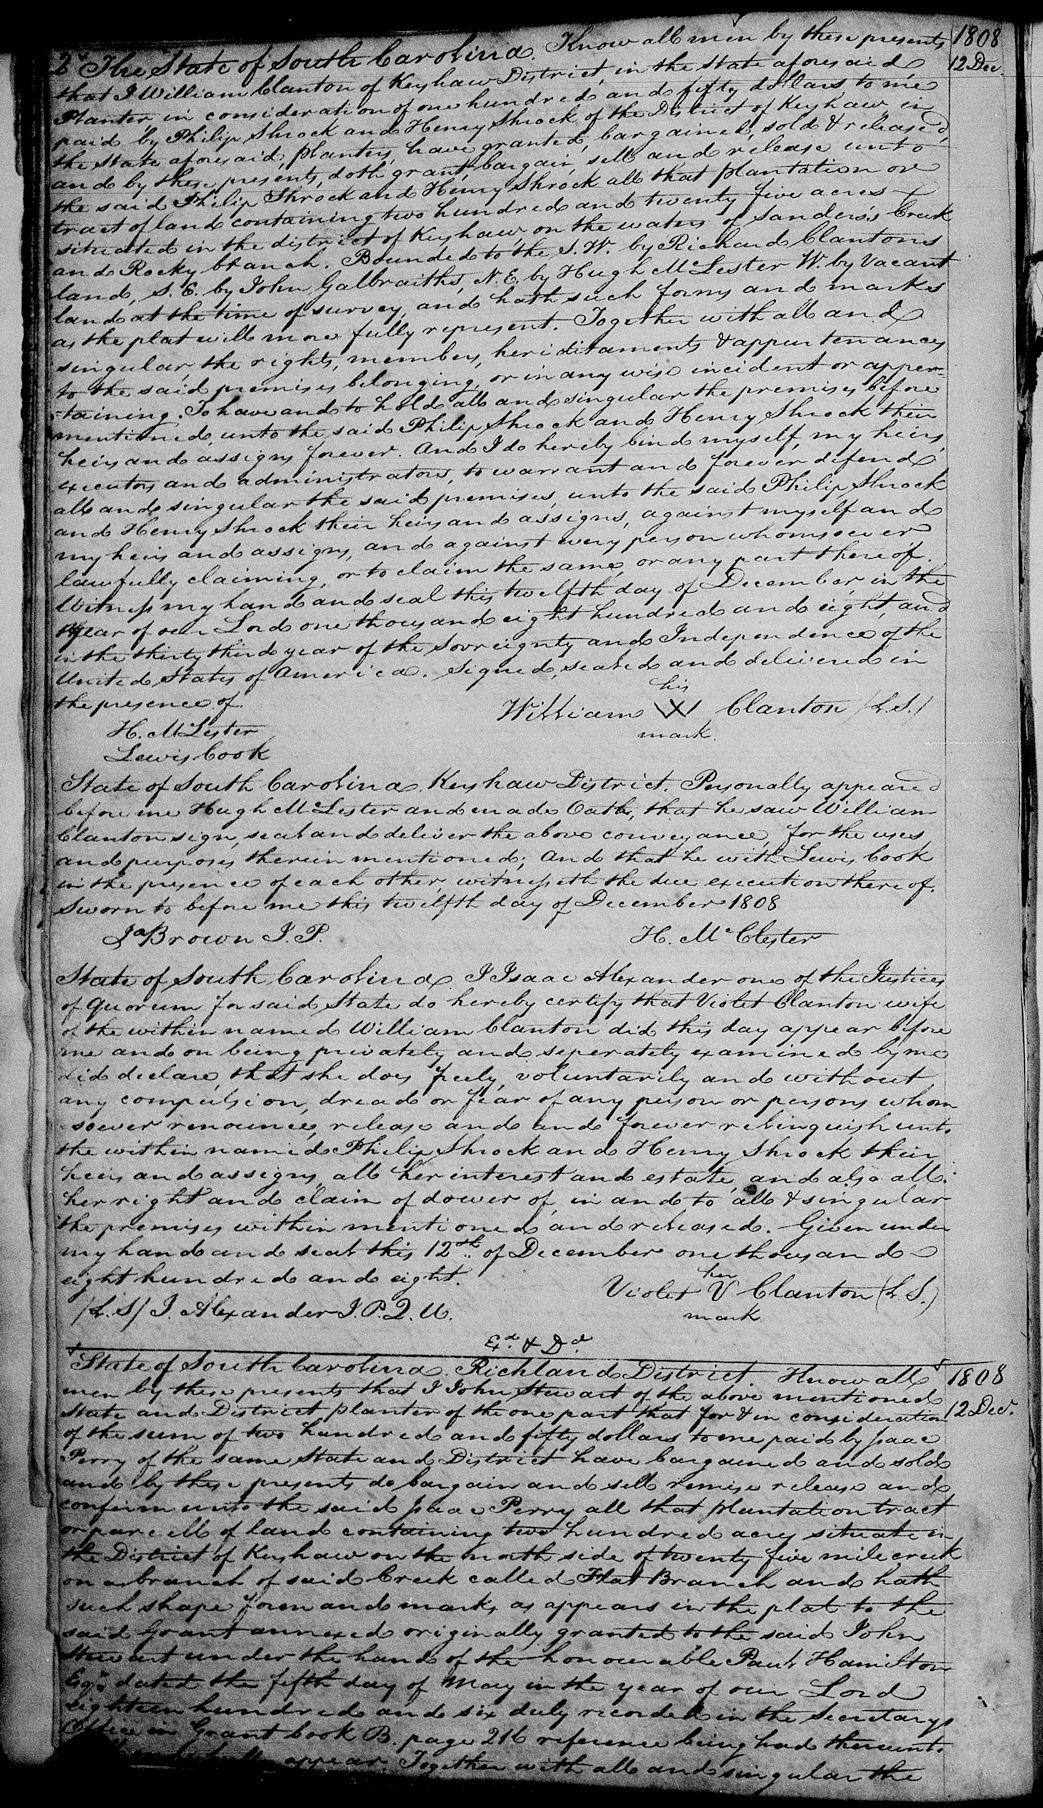 1808
12 Dec.
2d The State of South Carolina. Know all men by these presents
that I William Clanton of Kershaw District, in the state aforesaid
Planter in consideration of one hundred and fifty dollars to me
paid by Philip Shrock and Henry Shrock of the District of Kershaw in
the state aforesaid, planters, have granted, bargained, sold & released,
and by these presents, doth grant, bargain, sell and release unto
the said Philip Shrock and Henry Shrock all that plantation or
tract of land containing two hundred and twenty five acres
situated in the district of Kershaw on the waters of Sanders's Creek
and Rocky branch. Bounded to the S.W. by Richard Clantons
land, S.E. by John Galbraiths, N.E. by Hugh McLester W. by Vacant
land at the time of survey, and hath such forms and marks
as the plat will more fully represent. Together with all and
singular the rights, members, heriditaments & appurtenances
to the said premises belonging, or in any wise incident or apper-
-taining. To have and to hold all and singular the premises before
mentioned unto the said Philip Shrock and Henry Shrock their
heirs and assigns forever. And I do hereby bind myself, my heirs,
executors and administrators, to warrant and forever defend
all and singular the said premises, unto the said Philip Shrock
and Henry Shrock their heirs and assigns, against myself and
my heirs and assigns, and against every person whomsoever
lawfully claiming, or to claim the same, or any part thereof.
Witness my hand and seal this twelfth day of December, in the
year of our Lord one thousand eight hundred and eight, and
in the thirty third year of the sovreignty and Independence of the
United States of America. Signed, sealed and delivered in
the presence of
his
William W Clanton (L.S.)
mark.
H. McLester
Lewis Cook
State of South Carolina, Kershaw District. Personally appeared
before me Hugh McLester and made Oath, that he saw William
Clanton sign, seal and deliver the above conveyance, for the uses
and purposes therein mentioned; And that he with Lewis Cook
in the presence of each other, witnesseth the due execution thereof.
Sworn to before me this twelfth day of December 1808
Ja Brown J.P.
H. McClester
State of South Carolina. I Isaac Alexander one of the Justices
of Quorum for said State do hereby certify that Violet Clanton wife
of the within named William Clanton did this day appear before
me and on being privately and seperately examined by me
did declare, that she does freely, voluntarily and without
any compulsion, dread or fear of any person or persons whom
-soever renounce, release and and forever relinquish unto
the within named Philip Shrock and Henry Shrock their
heirs and assigns, all her interest and estate, and also all
her right and claim of dower of, in and to all & singular
the premises within mentioned and released. Given under
my hand and seal this 12th of December one thousand
eight hundred and eight.
her
Violet V Clanton (L.S.)
mark
(L.S) I. Alexander J.P.Q.U.
Ed. & Dd.
1808
12 Dec.
State of South Carolina. Richland District. Know all
men by these presents that I John Stewart of the above mentioned
State and District planter of the one part that for & in consideration
of the sum of two hundred and fifty dollars to me paid by Isaac
Perry of the same State and District have bargained and sold
and by these presents do bargain and sell remise release and
confirm unto the said Isaac Perry all that plantation tract
or parcell of land containing two hundred acres situate in
the District of Kershaw on the north side of twenty five mile creek
on a branch of said Creek called Flat Branch and hath
such shape form and marks as appears in the plat to the
said Grant annexed originally granted to the said John
Stewart under the hand of the honourable Paul Hamilton
Esqr. dated the fifth day of May in the year of our Lord
eighteen hundred and six duly recorded in the Secretarys
Office in Grant book B. page 216 reference being had thereunto
appear. Together with all and singular the